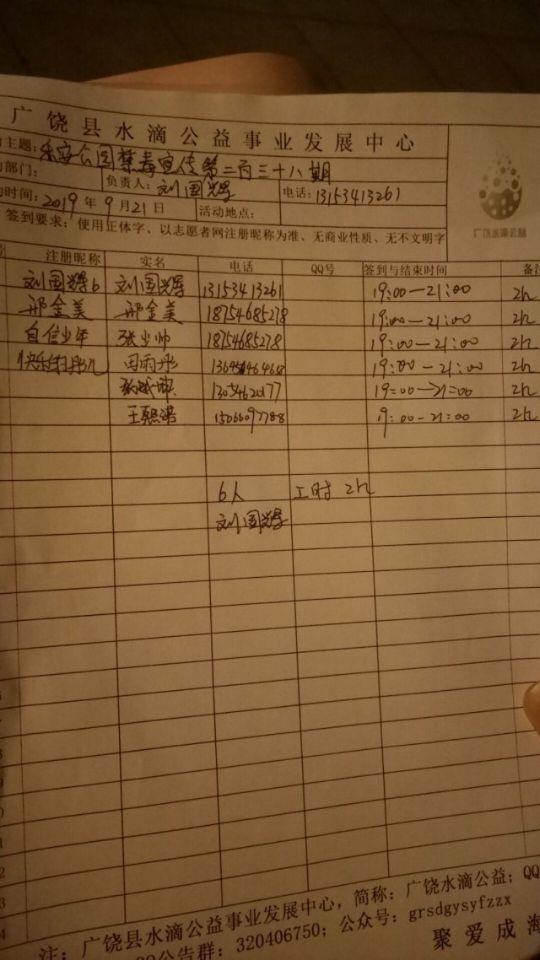 广饶县水滴公益事业发展中心
主题：乐安公园禁毒宣传第二百三十八期
部门： 负责人：刘国辉 电话：13153413261
时间：2019年9月21日 活动地点：
广饶水滴公益
签到要求：使用正体字、以志愿者网注册昵称为准、无商业性质、无不文明字
注册昵称 实名 电话 QQ号 签到与结束时间 备注
刘国辉6 刘国辉 13153413261 19:00—21:00 2h
邢金美 邢金美 18754685278 19:00—21:00 2h
自信少年 张少帅 18754685278 19:00—21:00 2h
田雨彤 19:00—21:00 2h
13054620177 19:00—21:00 2h
王熙诺 15066097788 9:00—21:00 2h
6人 工时 2h
刘国辉
注：广饶县水滴公益事业发展中心，简称：广饶水滴公益；QQ
QQ公告群：320406750；公众号：grsdgysyfzzx
聚爱成海